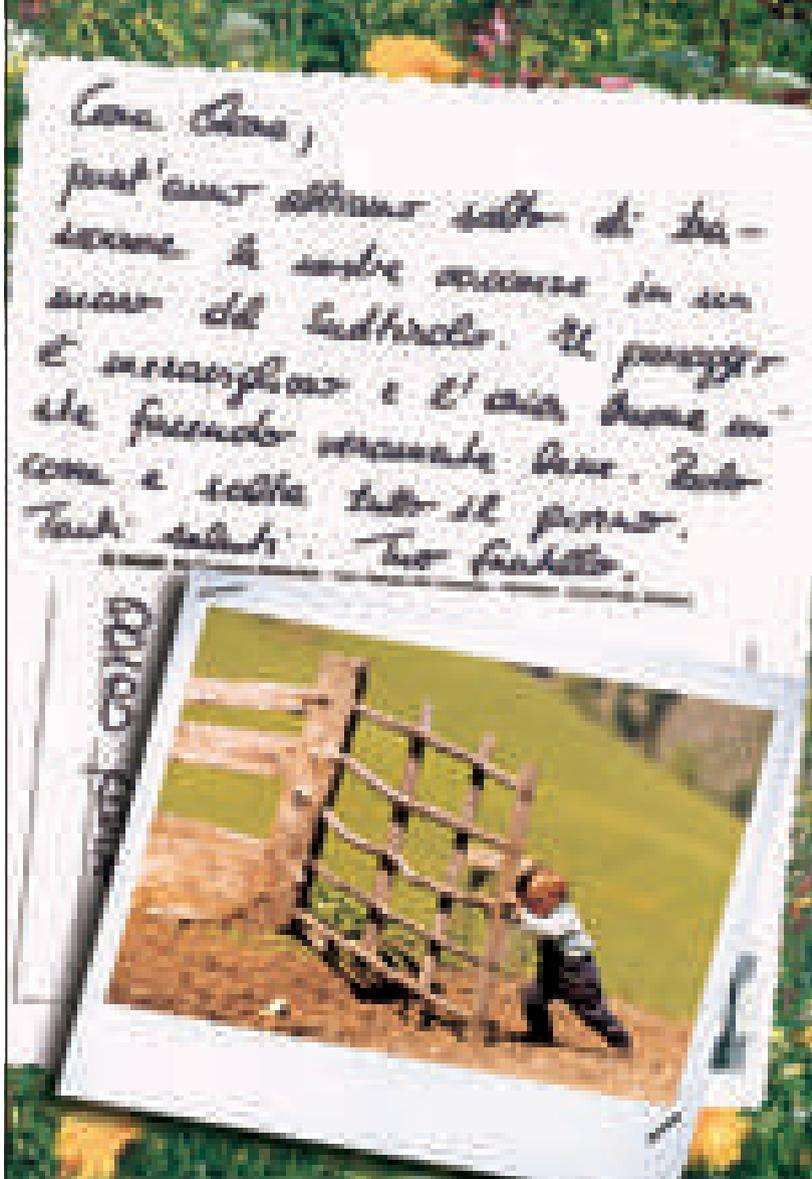 Cara Elena,
quest'anno abbiamo scelto di tra-
scorrere le nostre vacanze in un
maso del Sudtirolo. Il paesaggio
è meraviglioso e l'aria buona mi
sta facendo veramente bene. Paolo
corre e salta tutto il giorno.
Tanti saluti. Tuo fratello.